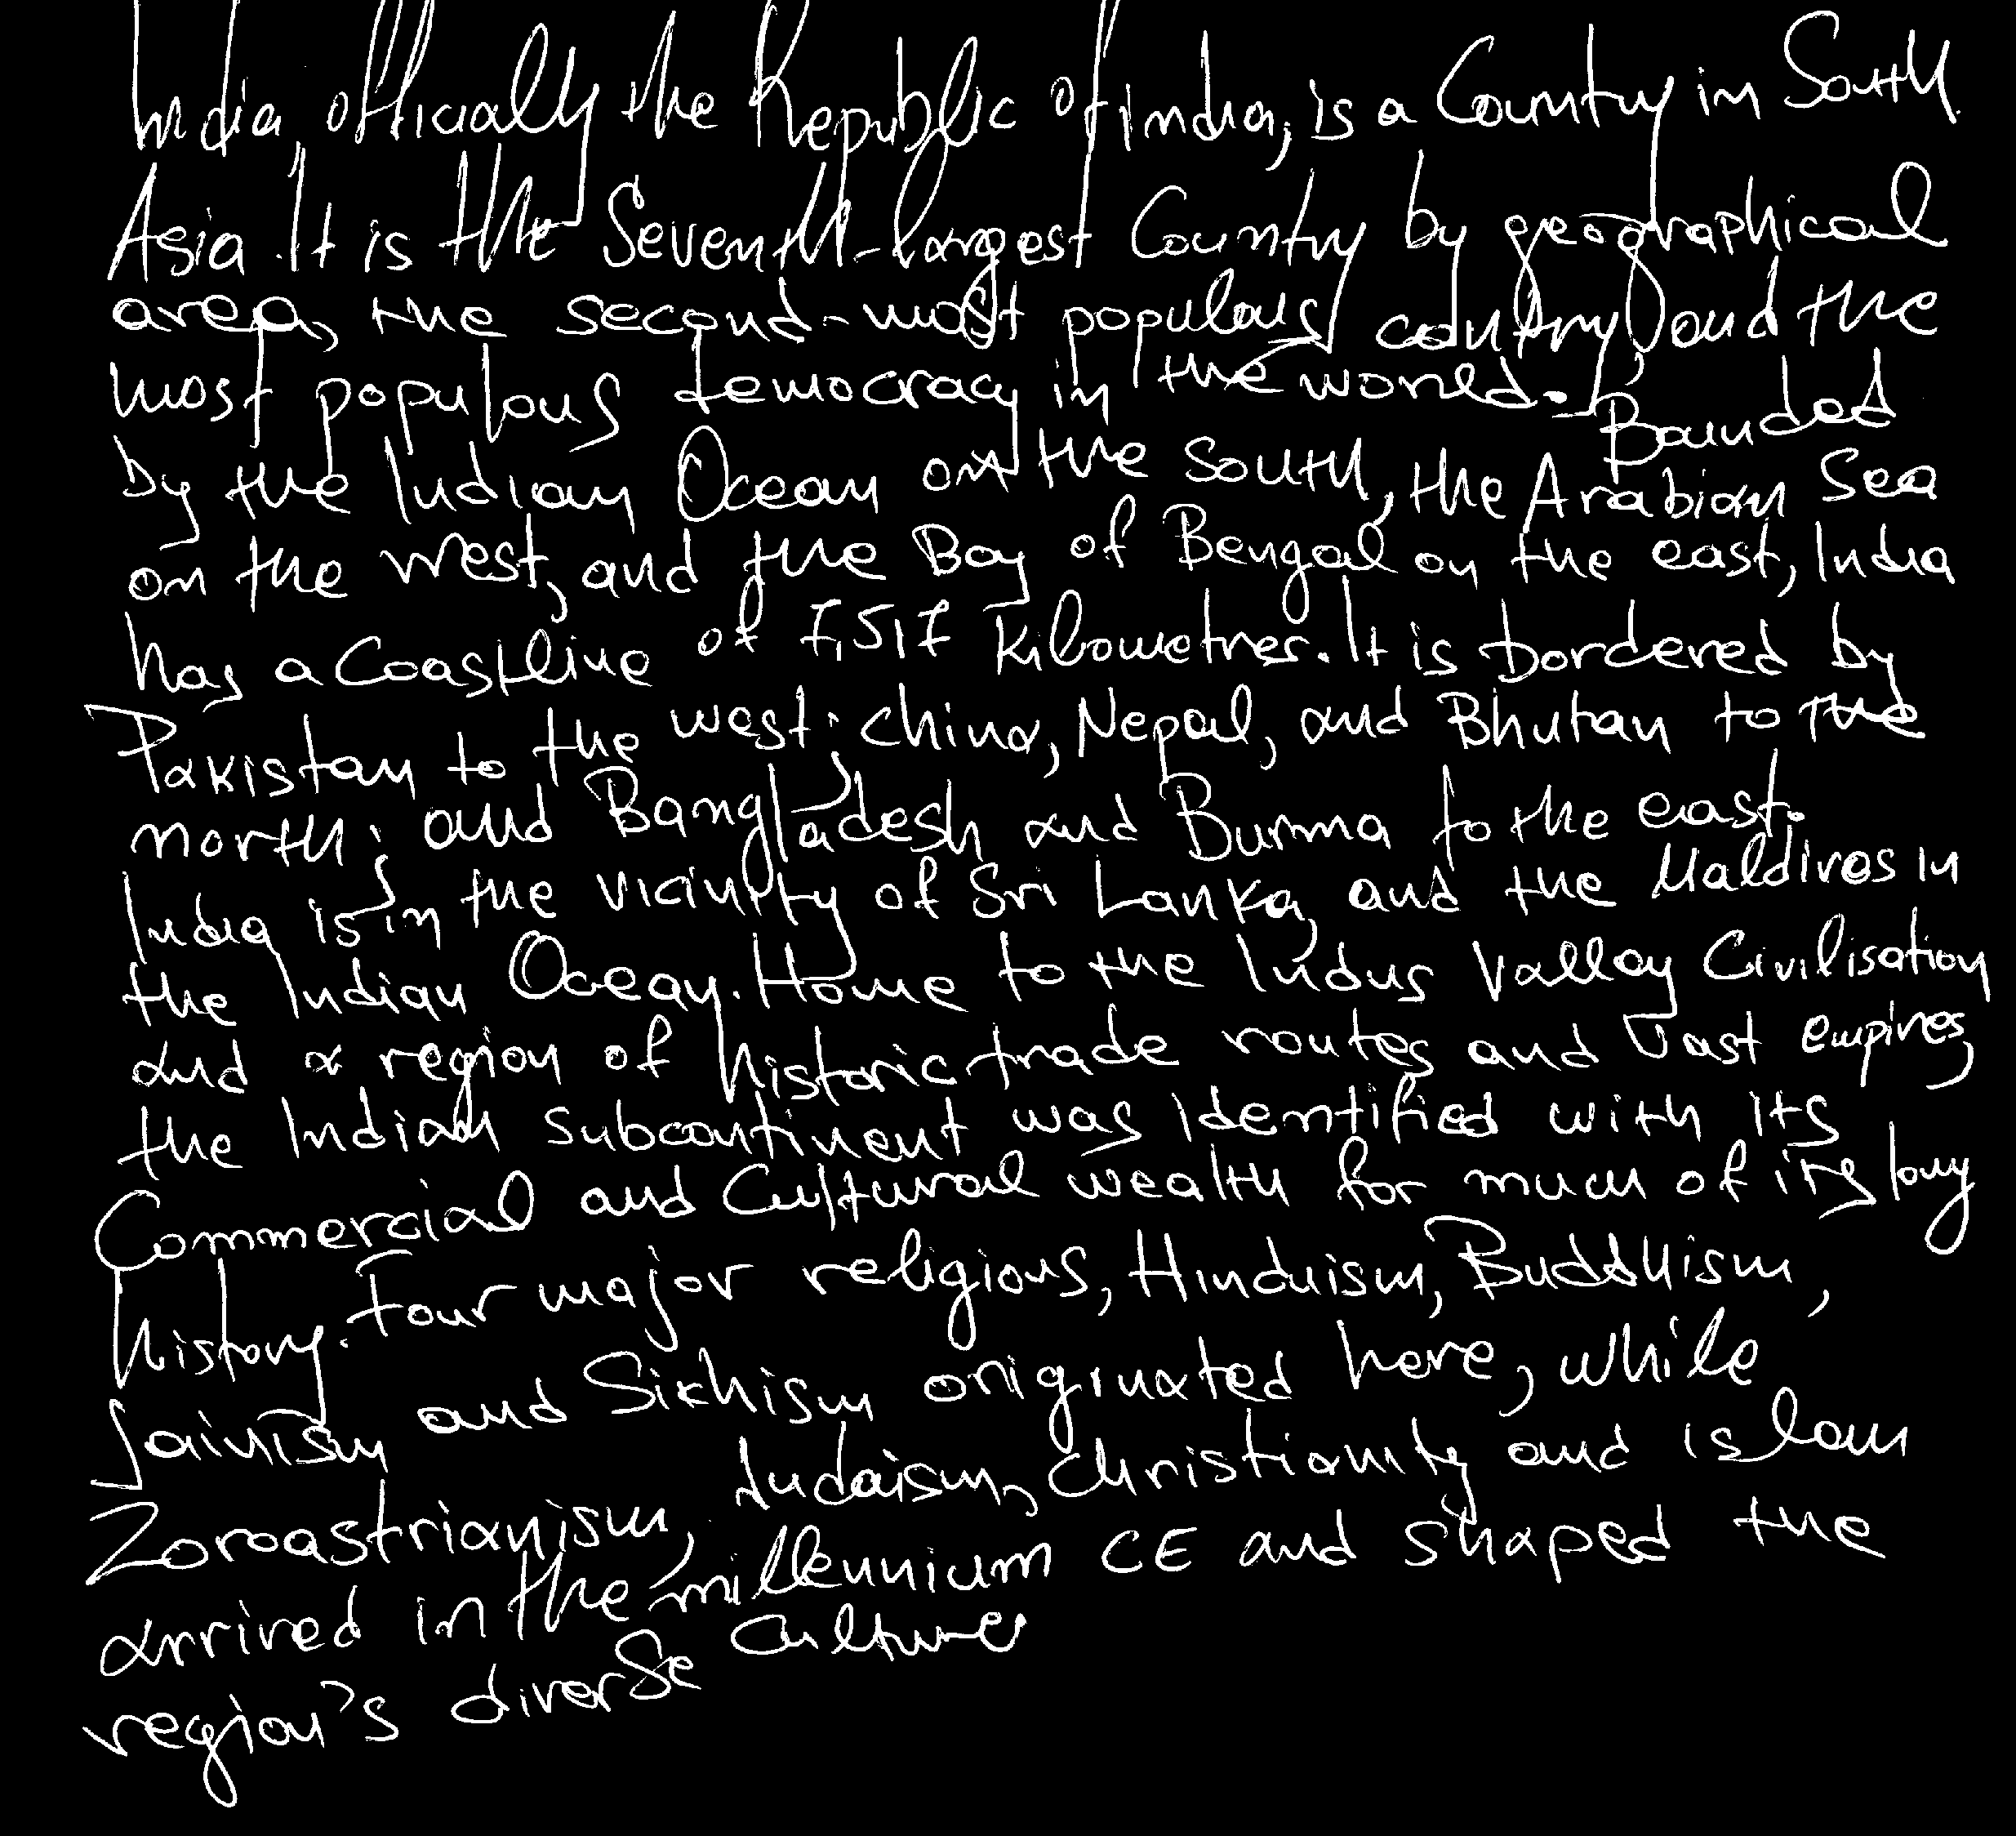 India, officially the Republic of india, is a Country in South
Asia. It is the Seventh-largest Country by geographical
area, the second-most populous country, and the
most populous democracy in the world. Bounded
by the Indian Ocean on the South, the Arabian Sea
on the west, and the Bay of Bengal on the east, India
has a Coastline of 7,517 kilometres. It is bordered by
Pakistan to the west; china, Nepal, and Bhutan to the
north; and Bangladesh and Burma to the east.
India is in the vicinity of Sri Lanka, and the Maldives in
the Indian Ocean. Home to the Indus Valley Civilisation
and a region of historic trade routes and Vast empires,
the Indian subcontinent was identified with its
Commercial and Cultural wealth for much of its long
history. Four major religions, Hinduism, Buddhism,
Jainism and Sikhism originated here, while
Zoroastrianism, Judaism, Christianity and islam
arrived in the millennium CE and shaped the
region's diverse Culture